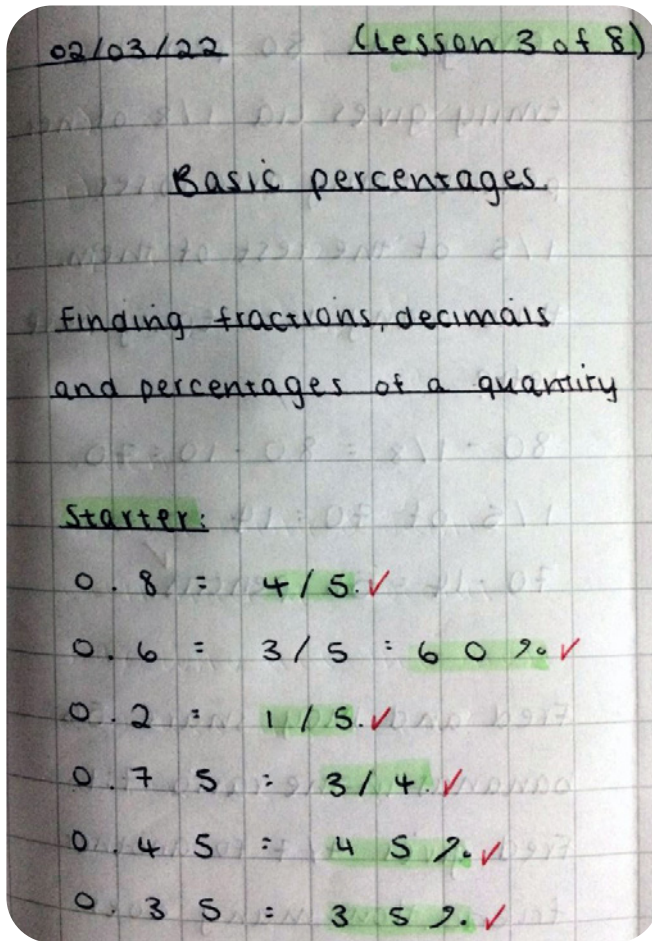 02/03/22 (Lesson 3 of 8)
Basic percentages.
Finding fractions, decimals
and percentages of a quantity
Starter:
0.8 = 4/5.
0.6 = 3/5 = 60%
0.2 = 1/5.
0.75 = 3/4.
0.45 = 45%.
0.35 = 35%.